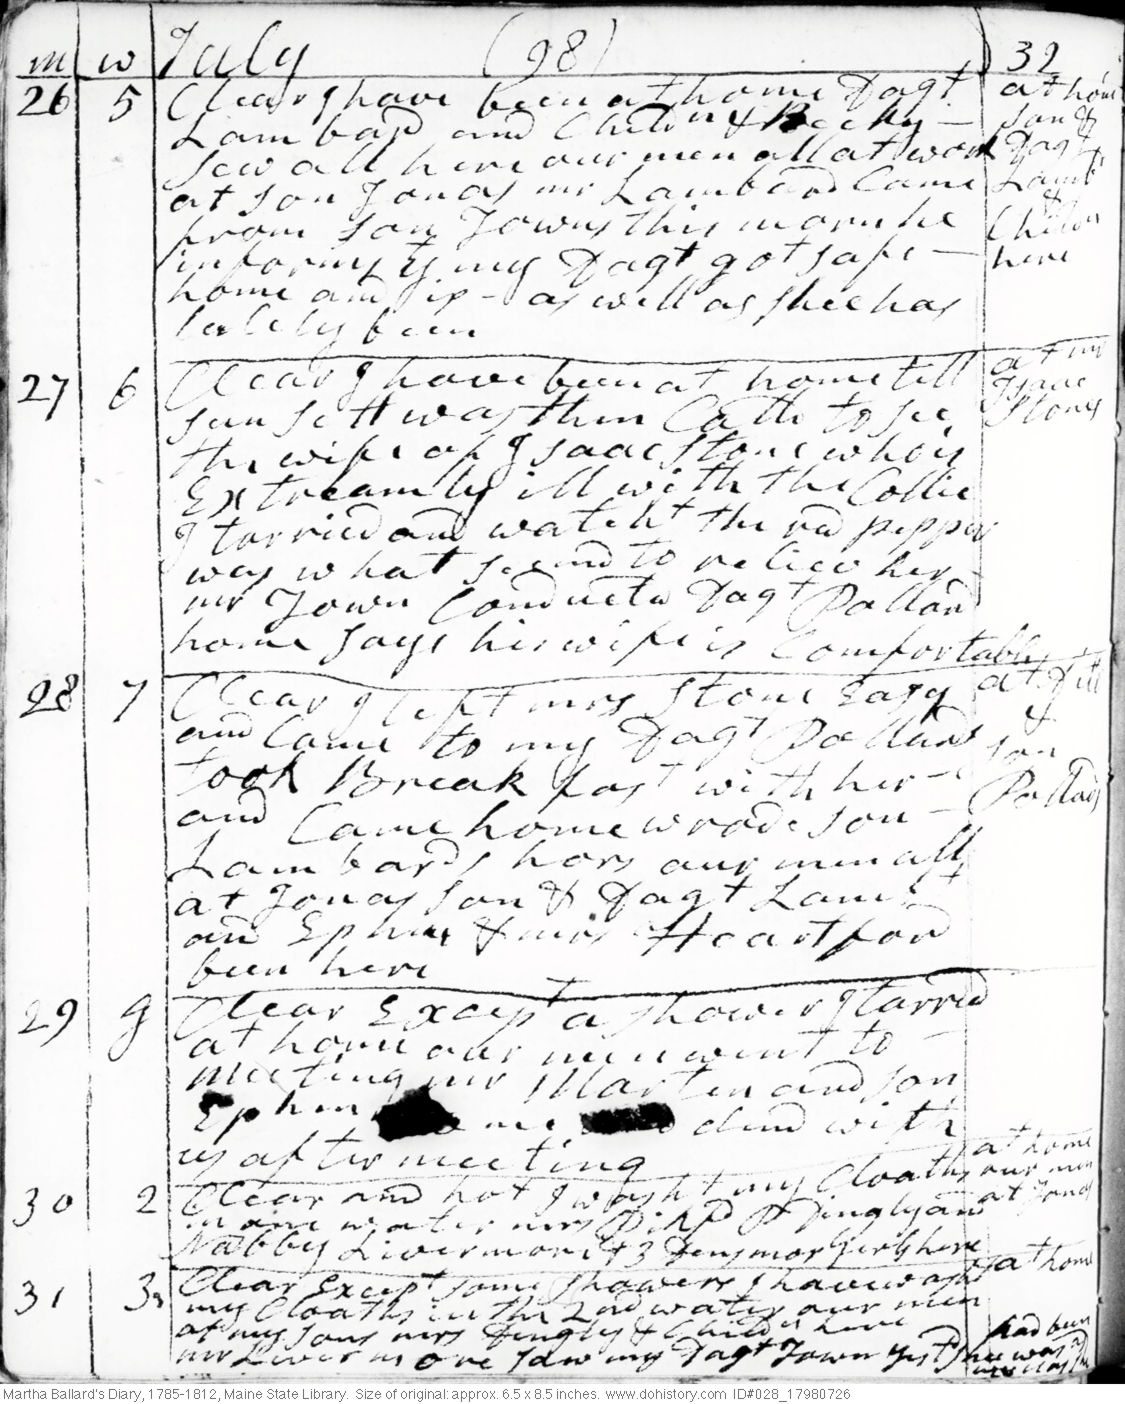 m w July (98) 32
26 5 Clear I have been at home Dagt at home
Lambard and Childn & Becky - son &
Sewall here our men all at work Dagt
at son Jonas mr Lambard Came Lambd
from son Towns this morn he & Childn
informs yt my Dagt got safe - here
home and is - as well as shee has
lately been
27 6 Clear I have been at home till at mr
sun sett was then Calld to see Isaac
the wife of Isaac Stone who is Stones
Extreamly ill with the Collic
I tarried and watcht the red pepper
was what seemd to reliev her -
mr Town Conducted Dagt Pollard
home says his wife is Comfortable
28 7 Clear I left mrs Stone Easy at Ditt
and Came to my Dagt Pollards &
took Breakfast with her - son
and Came home wrode son - Pollads
Lambards hors our men all
at Jonas son & Dagt Lamb
and Ephm & mrs Heartford
been here
29 g Clear Except a shower I tarried
at home our men went to -
meeting mr Marten and son
Ephm dind with
us after meeting
30 2 Clear and hot I washt my Cloaths at home
in one water mrs Dingly and our men
Nabby Livermore & 3 Densmor girls here at Jonas
31 3 Clear Except some showers I have washt at home
my Cloaths in the 2nd water our men
at my sons mrs Dingly & Childn here had been
mr Livermore saw my Dagt Town yestd shee was